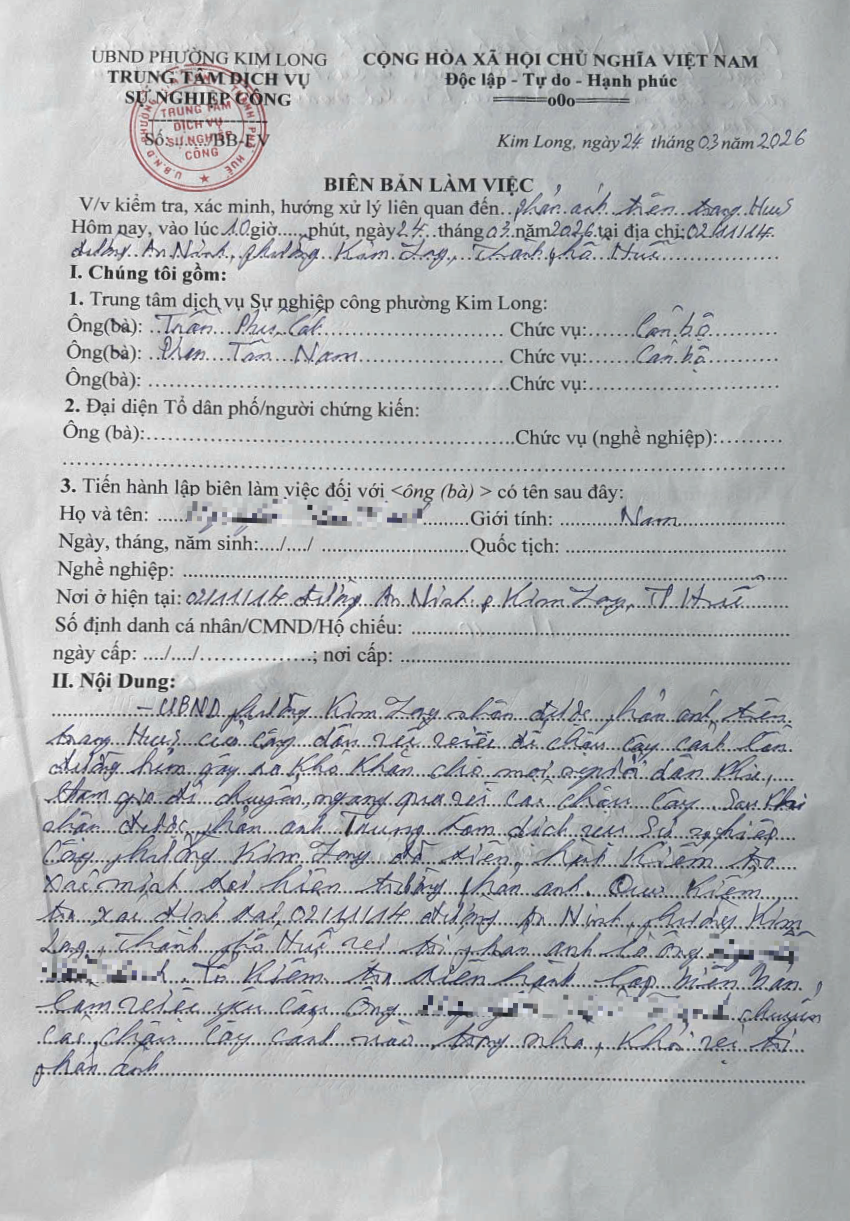 UBND PHƯỜNG KIM LONG
TRUNG TÂM DỊCH VỤ
SỰ NGHIỆP CÔNG
CỘNG HÒA XÃ HỘI CHỦ NGHĨA VIỆT NAM
Độc lập - Tự do - Hạnh phúc
======o0o======
TRUNG TÂM
DỊCH VỤ
SỰ NGHIỆP
CÔNG
Số:....../BB-EV
Kim Long, ngày 24 tháng 03 năm 2026
BIÊN BẢN LÀM VIỆC
V/v kiểm tra, xác minh, hướng xử lý liên quan đến phản ánh trên trang HueS
Hôm nay, vào lúc 10 giờ.....phút, ngày 24 tháng 03 năm 2026 tại địa chỉ: 02/11/114
đường An Ninh, phường Kim Long, Thành phố Huế
I. Chúng tôi gồm:
1. Trung tâm dịch vụ Sự nghiệp công phường Kim Long:
Ông(bà): Trần Phú Cát Chức vụ: Cán bộ
Ông(bà): Phan Tấn Nam Chức vụ: Cán bộ
Ông(bà): ........ Chức vụ: ........
2. Đại diện Tổ dân phố/người chứng kiến:
Ông (bà): ........ Chức vụ (nghề nghiệp): ........
3. Tiến hành lập biên làm việc đối với <ông (bà) > có tên sau đây:
Họ và tên: ........ Giới tính: Nam
Ngày, tháng, năm sinh:..../..../ ........ Quốc tịch: ........
Nghề nghiệp: ........
Nơi ở hiện tại: 02/11/114 đường An Ninh p Kim Long, TP Huế
Số định danh cá nhân/CMND/Hộ chiếu: ........
ngày cấp: ..../..../........; nơi cấp: ........
II. Nội Dung:
- UBND phường Kim Long nhận được phản ánh trên
trang HueS của công dân về việc để chậu cây cảnh lấn
đường hẻm gây ra khó khăn cho mọi người dân khi
tham gia di chuyển ngang qua vì các chậu cây. Sau khi
nhận được phản ánh Trung tâm dịch vụ Sự nghiệp
Công phường Kim Long đã tiến hành kiểm tra
xác minh tại hiện trường phản ánh. Qua kiểm
tra xác định tại 02/11/114 đường An Ninh, phường Kim
Long, Thành phố Huế vị trí phản ánh là ông
Tổ kiểm tra tiến hành lập biên bản
làm việc yêu cầu Ông chuyển
các chậu cây cảnh vào trong nhà, khỏi vị trí
phản ánh